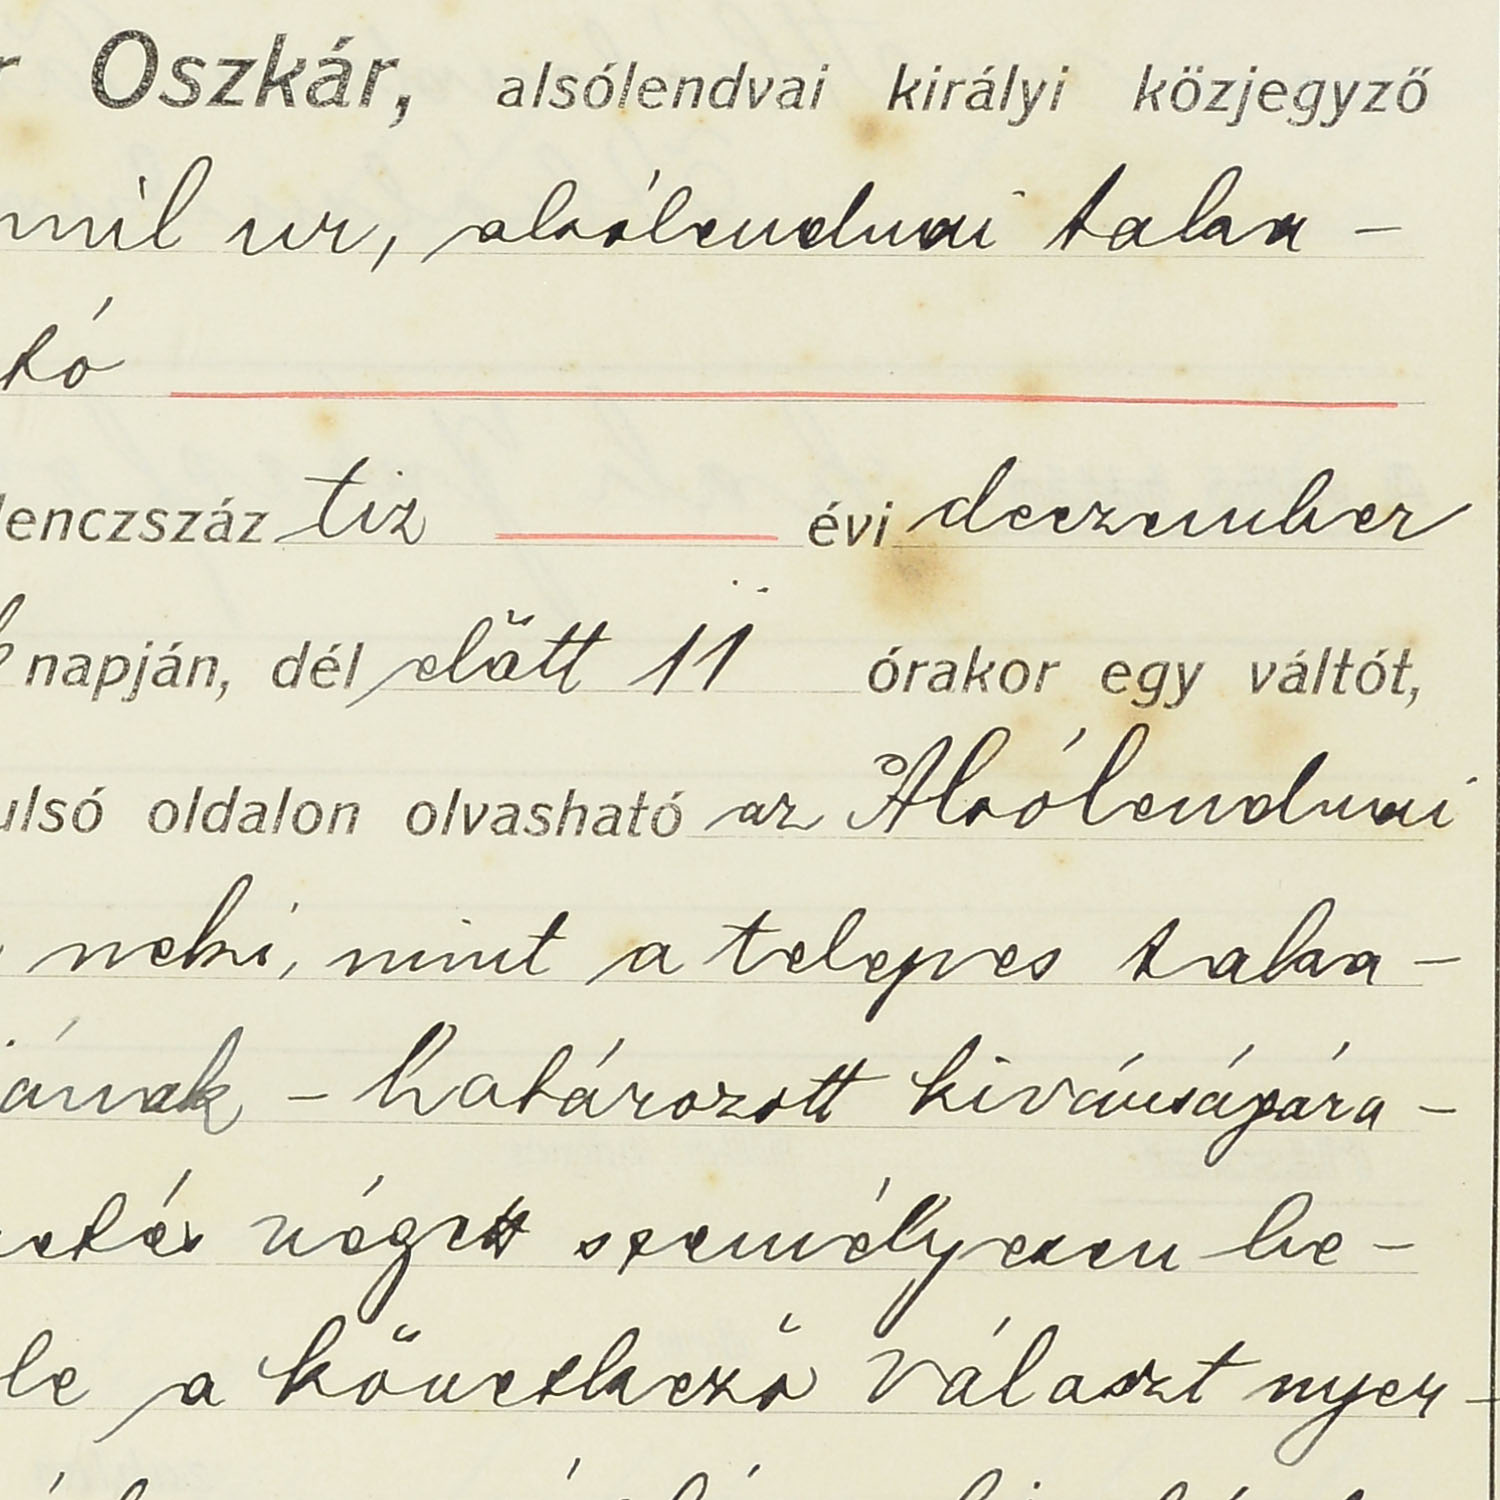 r Oszkár, alsólendvai királyi közjegyző
mil ur, alsólendvai taka-
tó
lenczszáz tiz évi deczember
napján, dél előtt 11 órakor egy váltót,
ulsó oldalon olvasható az Alsólendvai
neki, mint a telepes taka-
jának - határozott kivánságára -
etés végett személyesen be-
le a következő választ nyer-